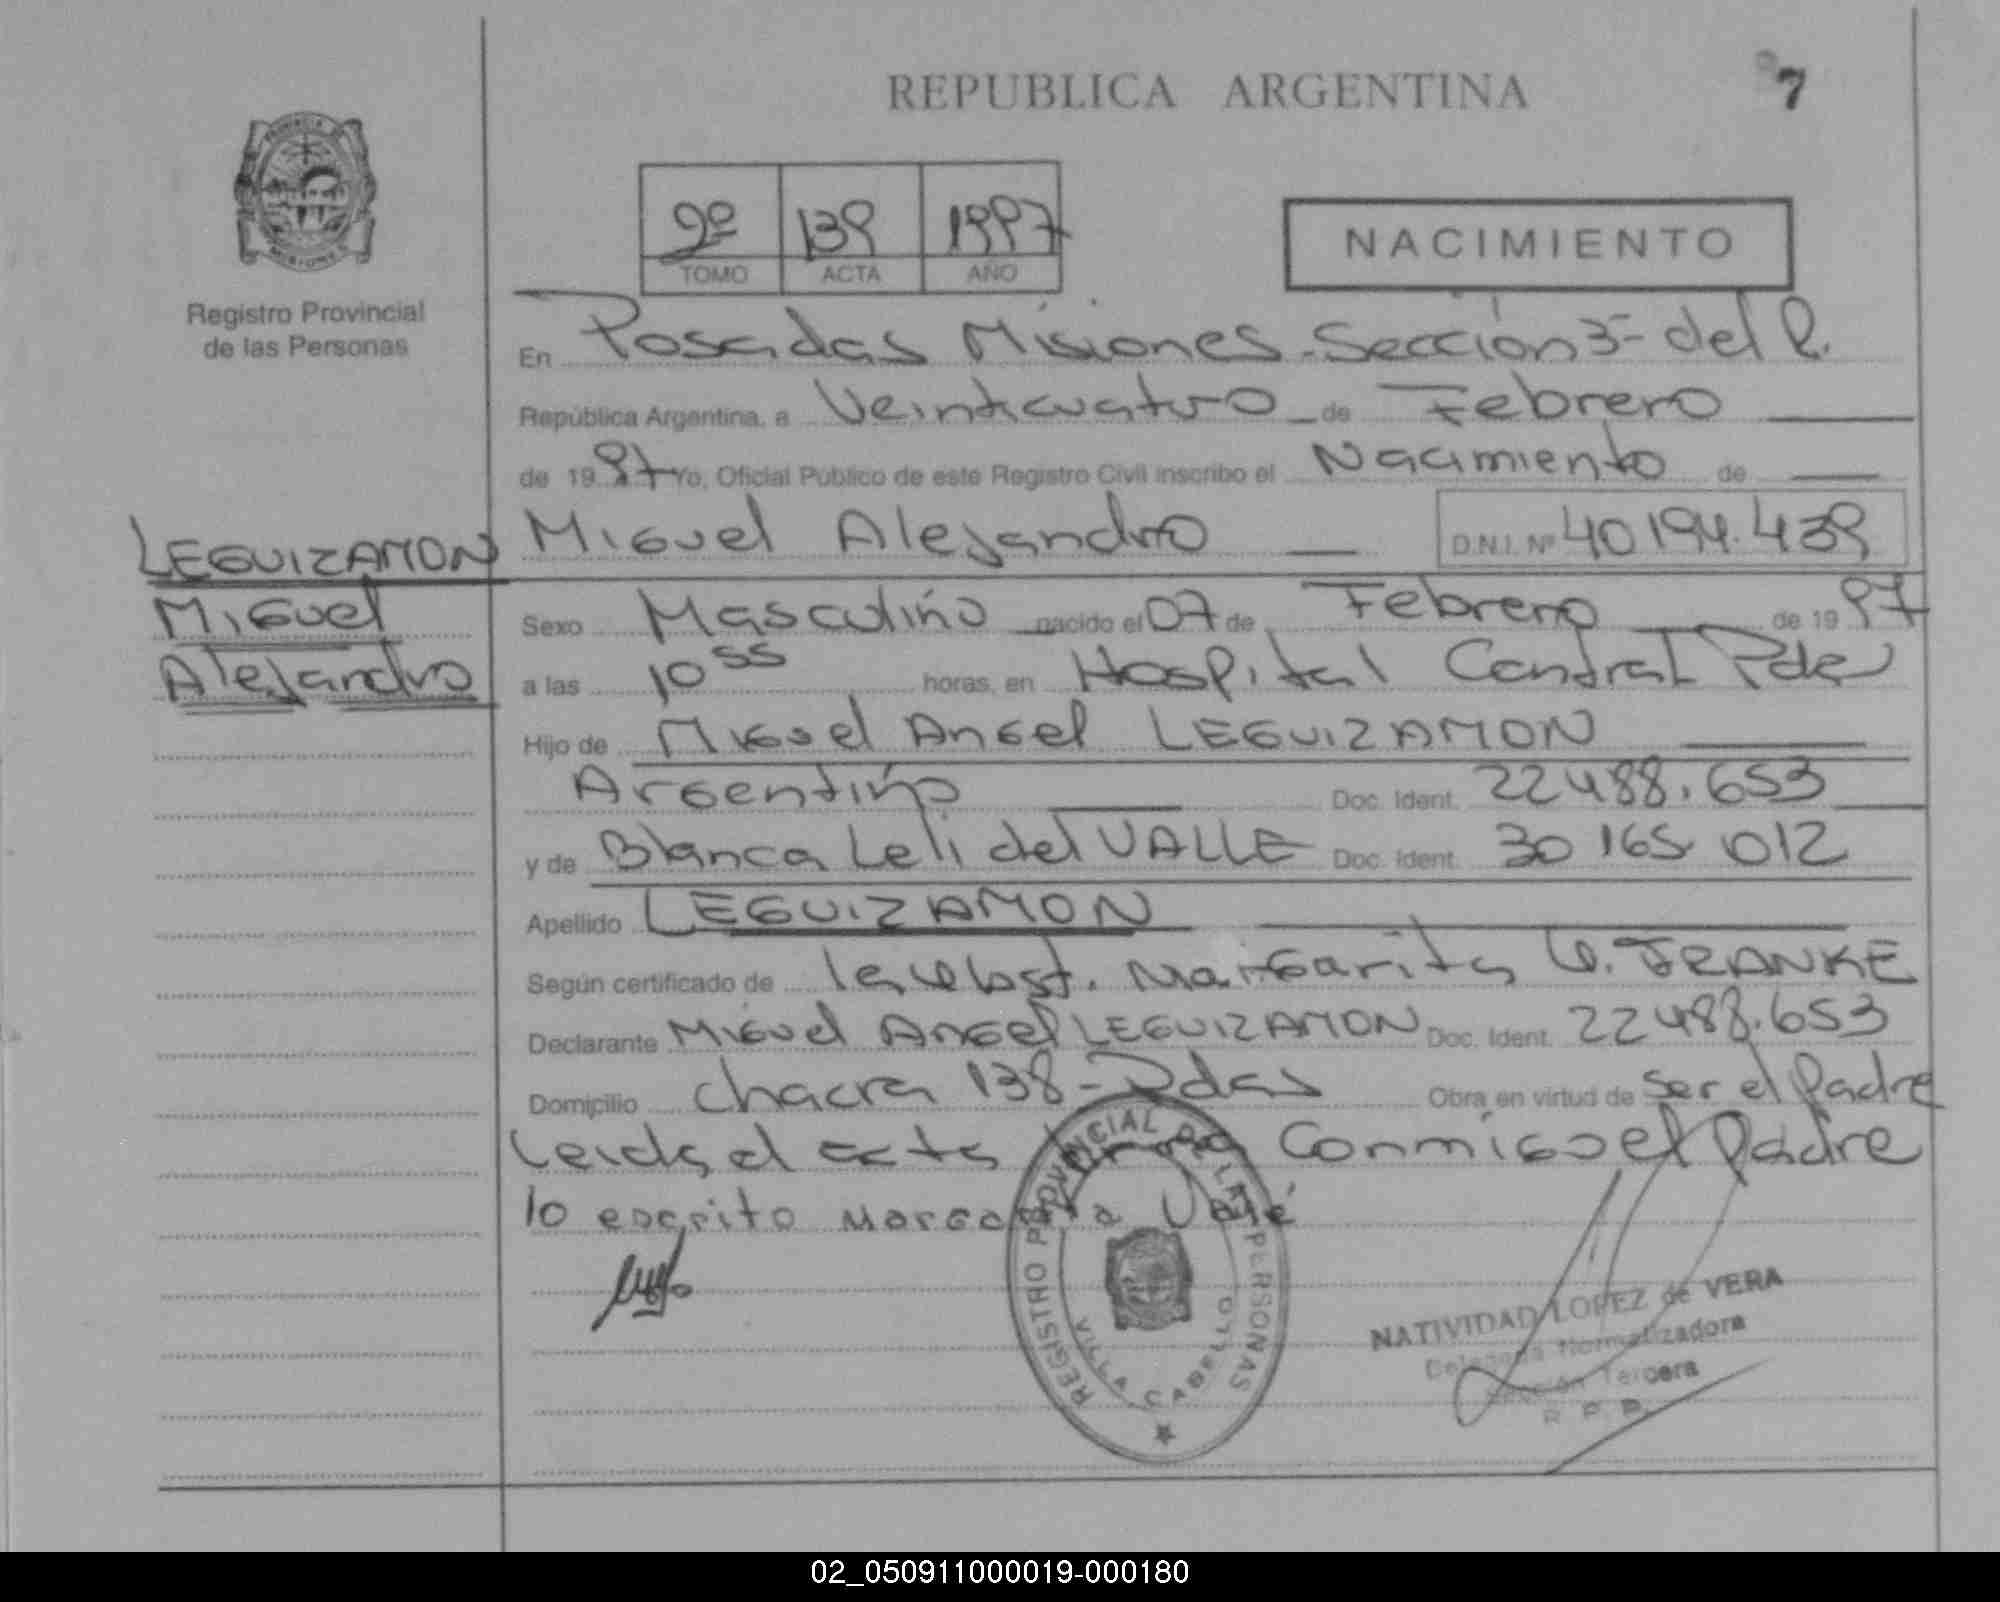 REPUBLICA ARGENTINA
7
PROVINCIA DE
MISIONES
Registro Provincial
de las Personas
2º 139 1997
TOMO ACTA AÑO
NACIMIENTO
En Posadas Misiones - Sección 3ª del R.
República Argentina, a Veinticuatro de Febrero
de 1997 Yo, Oficial Público de este Registro Civil inscribo el Nacimiento de
LEGUIZAMON Miguel Alejandro D.N.I. Nº 40 194.439
Miguel
Alejandro
Sexo Masculino nacido el 07 de Febrero de 1997
a las 10 55 horas, en Hospital Central Pdas
Hijo de Miguel Angel LEGUIZAMON
Argentino Doc. Ident. 22488.653
y de Blanca Leli del VALLE Doc. Ident. 30 165 012
Apellido LEGUIZAMON
Según certificado de la Obst. Margarita FRANKE
Declarante Miguel Angel LEGUIZAMON Doc. Ident. 22488.653
Domicilio Chacra 138 - Pdas Obra en virtud de Ser el Padre
Leida el acta Conmigo el Padre
lo escrito Margarita Vale
REGISTRO PROVINCIAL DE LAS PERSONAS
VILLA CABELLO
NATIVIDAD LOPEZ de VERA
Delegada Normalizadora
Sección Tercera
R. P. P.
02_050911000019-000180